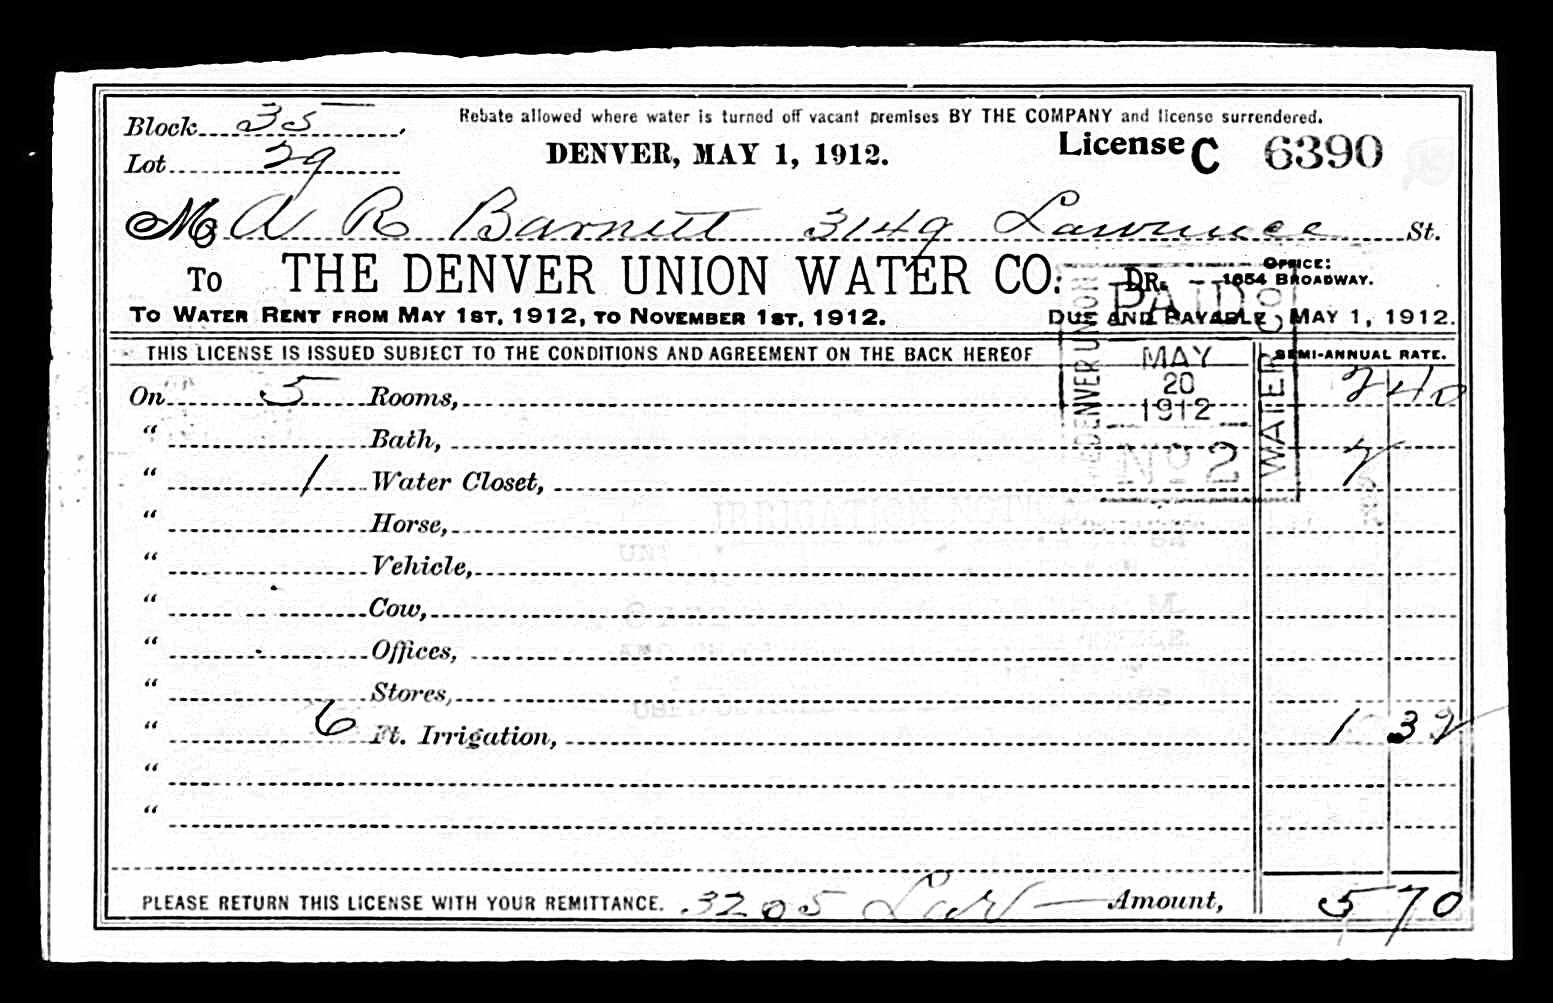 Block 35
Rebate allowed where water is turned off vacant premises BY THE COMPANY and license surrendered.
Lot 29
DENVER, MAY 1, 1912.
License C 6390
M A R Barnett 3149 Lawrence St.
To THE DENVER UNION WATER CO. DR.
OFFICE: 1654 BROADWAY.
TO WATER RENT FROM MAY 1ST, 1912, TO NOVEMBER 1ST, 1912.
DUE AND PAYABLE MAY 1, 1912.
THIS LICENSE IS ISSUED SUBJECT TO THE CONDITIONS AND AGREEMENT ON THE BACK HEREOF
SEMI-ANNUAL RATE.
PAID
DENVER UNION WATER CO.
MAY
20
1912
No 2
On 5 Rooms, 2 40
“ Bath,
“ 1 Water Closet, 2
“ Horse,
“ Vehicle,
“ Cow,
“ Offices,
“ Stores,
“ 6 Ft. Irrigation, 1 32
“
“
PLEASE RETURN THIS LICENSE WITH YOUR REMITTANCE. 3205 Amount, 5 70